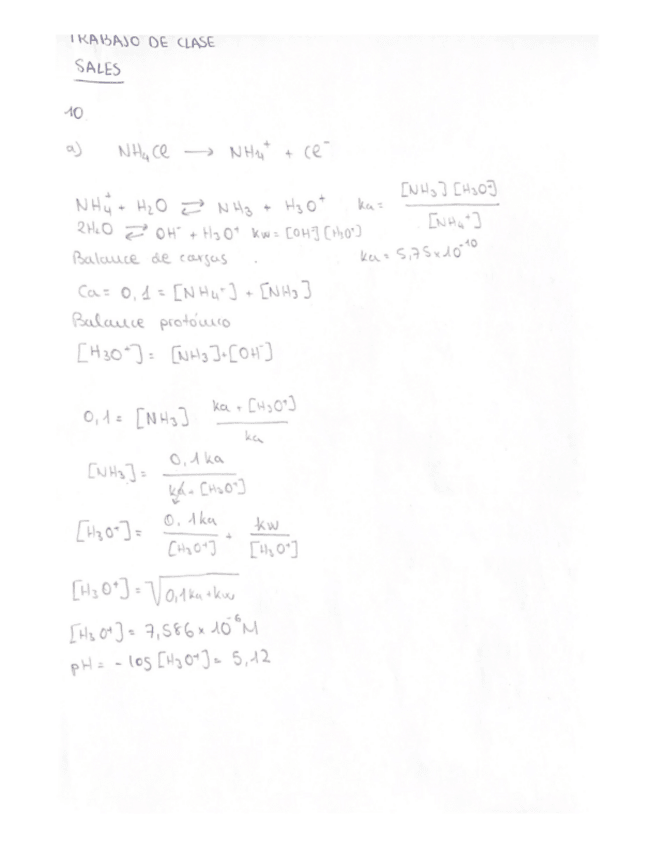 TRABAJO DE CLASE
SALES
10
a) NH4Cl → NH4+ + Cl-
NH4+ + H2O ⇄ NH3 + H3O+ ka = [NH3][H3O+] / [NH4+]
2H2O ⇄ OH- + H3O+ kw = [OH-][H3O+]
Balance de cargas . ka = 5,75x10-10
Ca = 0,1 = [NH4+] + [NH3]
Balance protónico
[H3O+] = [NH3]+[OH-]
0,1 = [NH3] ka + [H3O+] / ka
[NH3] = 0,1ka / ka + [H3O+]
[H3O+] = 0,1ka / [H3O+] + kw / [H3O+]
[H3O+] = √0,1ka+kw
[H3O+] = 7,586 x 10-6 M
pH = - log [H3O+] = 5,12